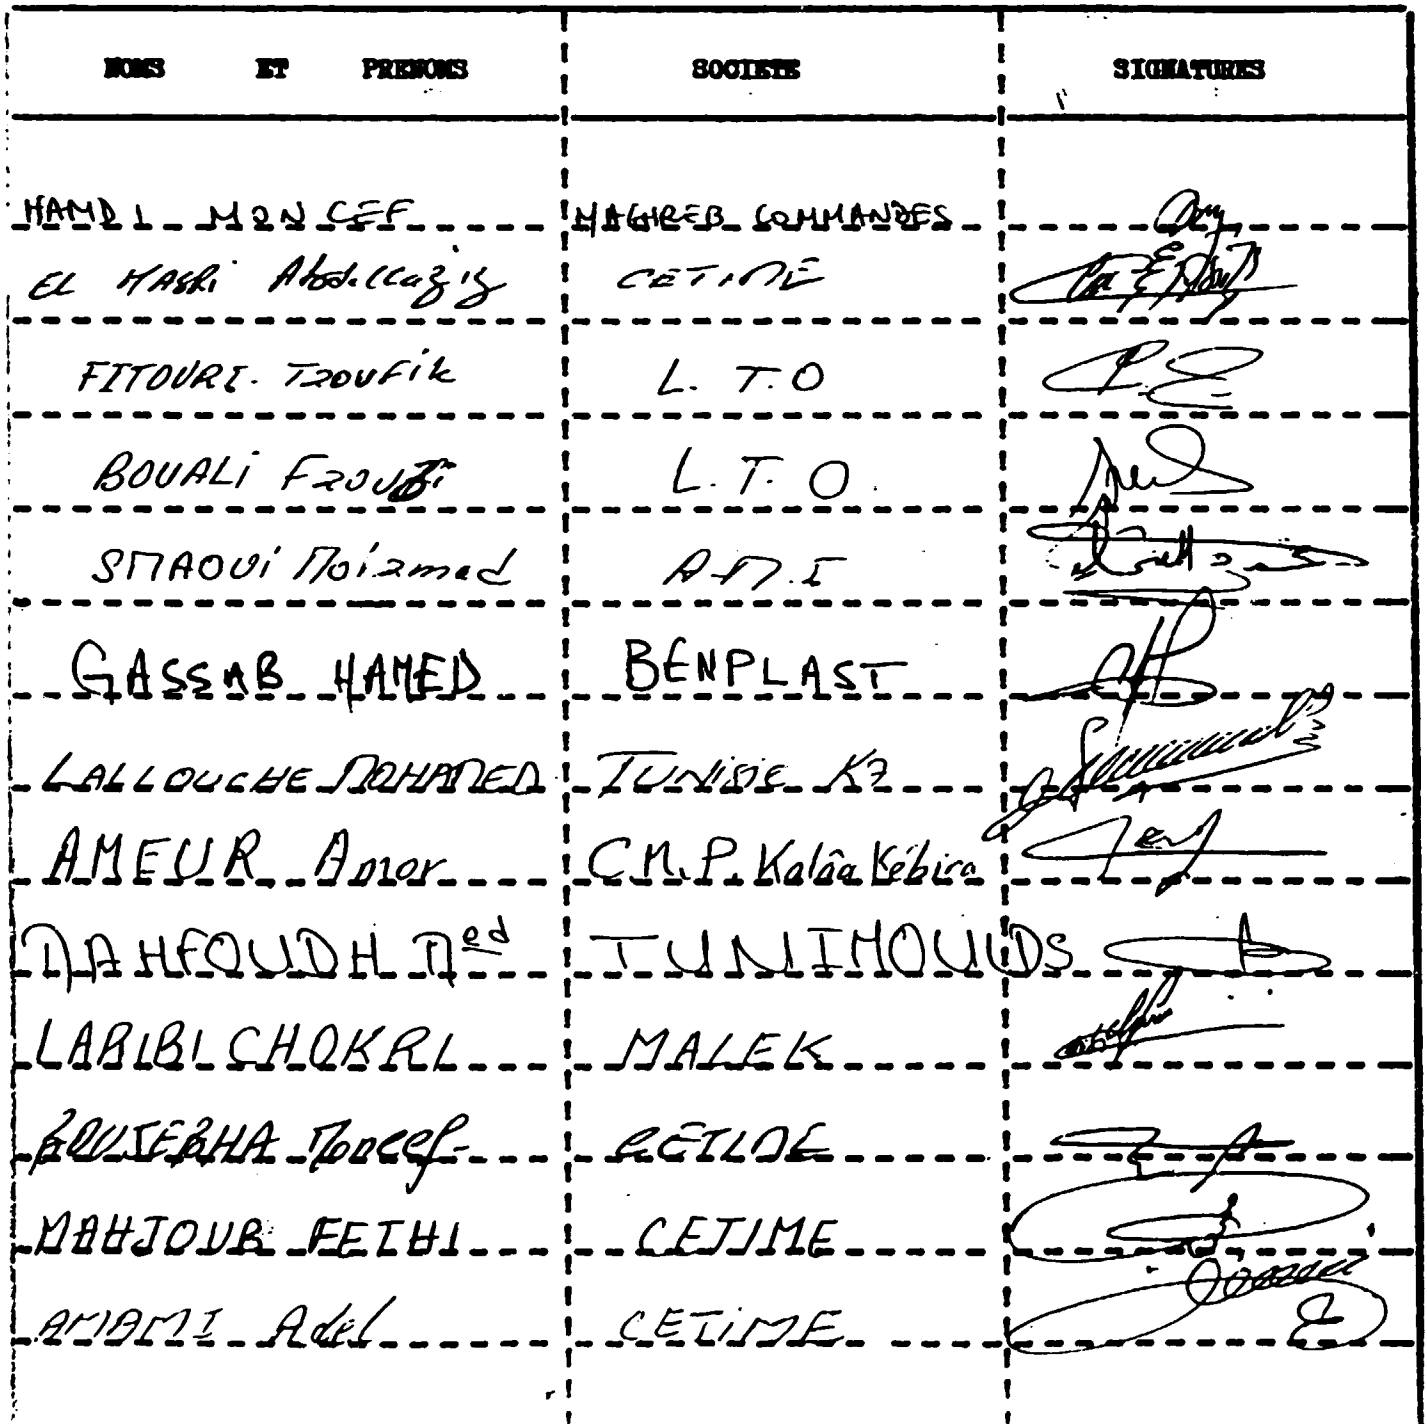 NOMS ET PRENOMS SOCIETE SIGNATURES
HAMDI MONCEF MAGHREB COMMANDES
EL Abdellaziz CETIME
FITOURI. Taoufik L. T. O
BOUALI Faouzi L. T. O.
SMAOUI A.M.I
GASSAB HAMED BENPLAST
LALLOUCHE MOHAMED TUNISIE K7
AMEUR Amor C.M.P. Kalâa Kébira
MAHFOUDH Med TUNIMOULDS
LABIBI CHOKRI MALEK
BOUJEBHA Moncef CETIME
MAHJOUB FETHI CETIME
AMAMI Adel CETIME